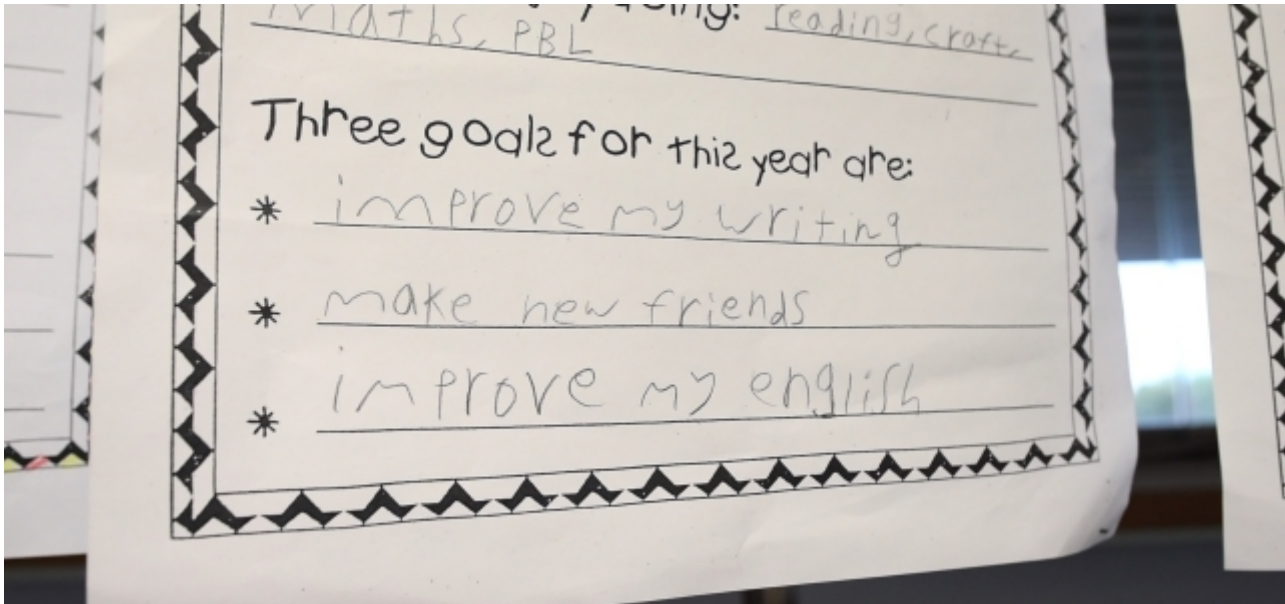 reading, craft,
maths, PBL
Three goals for this year are:
* improve my writing
* make new friends
* improve my english